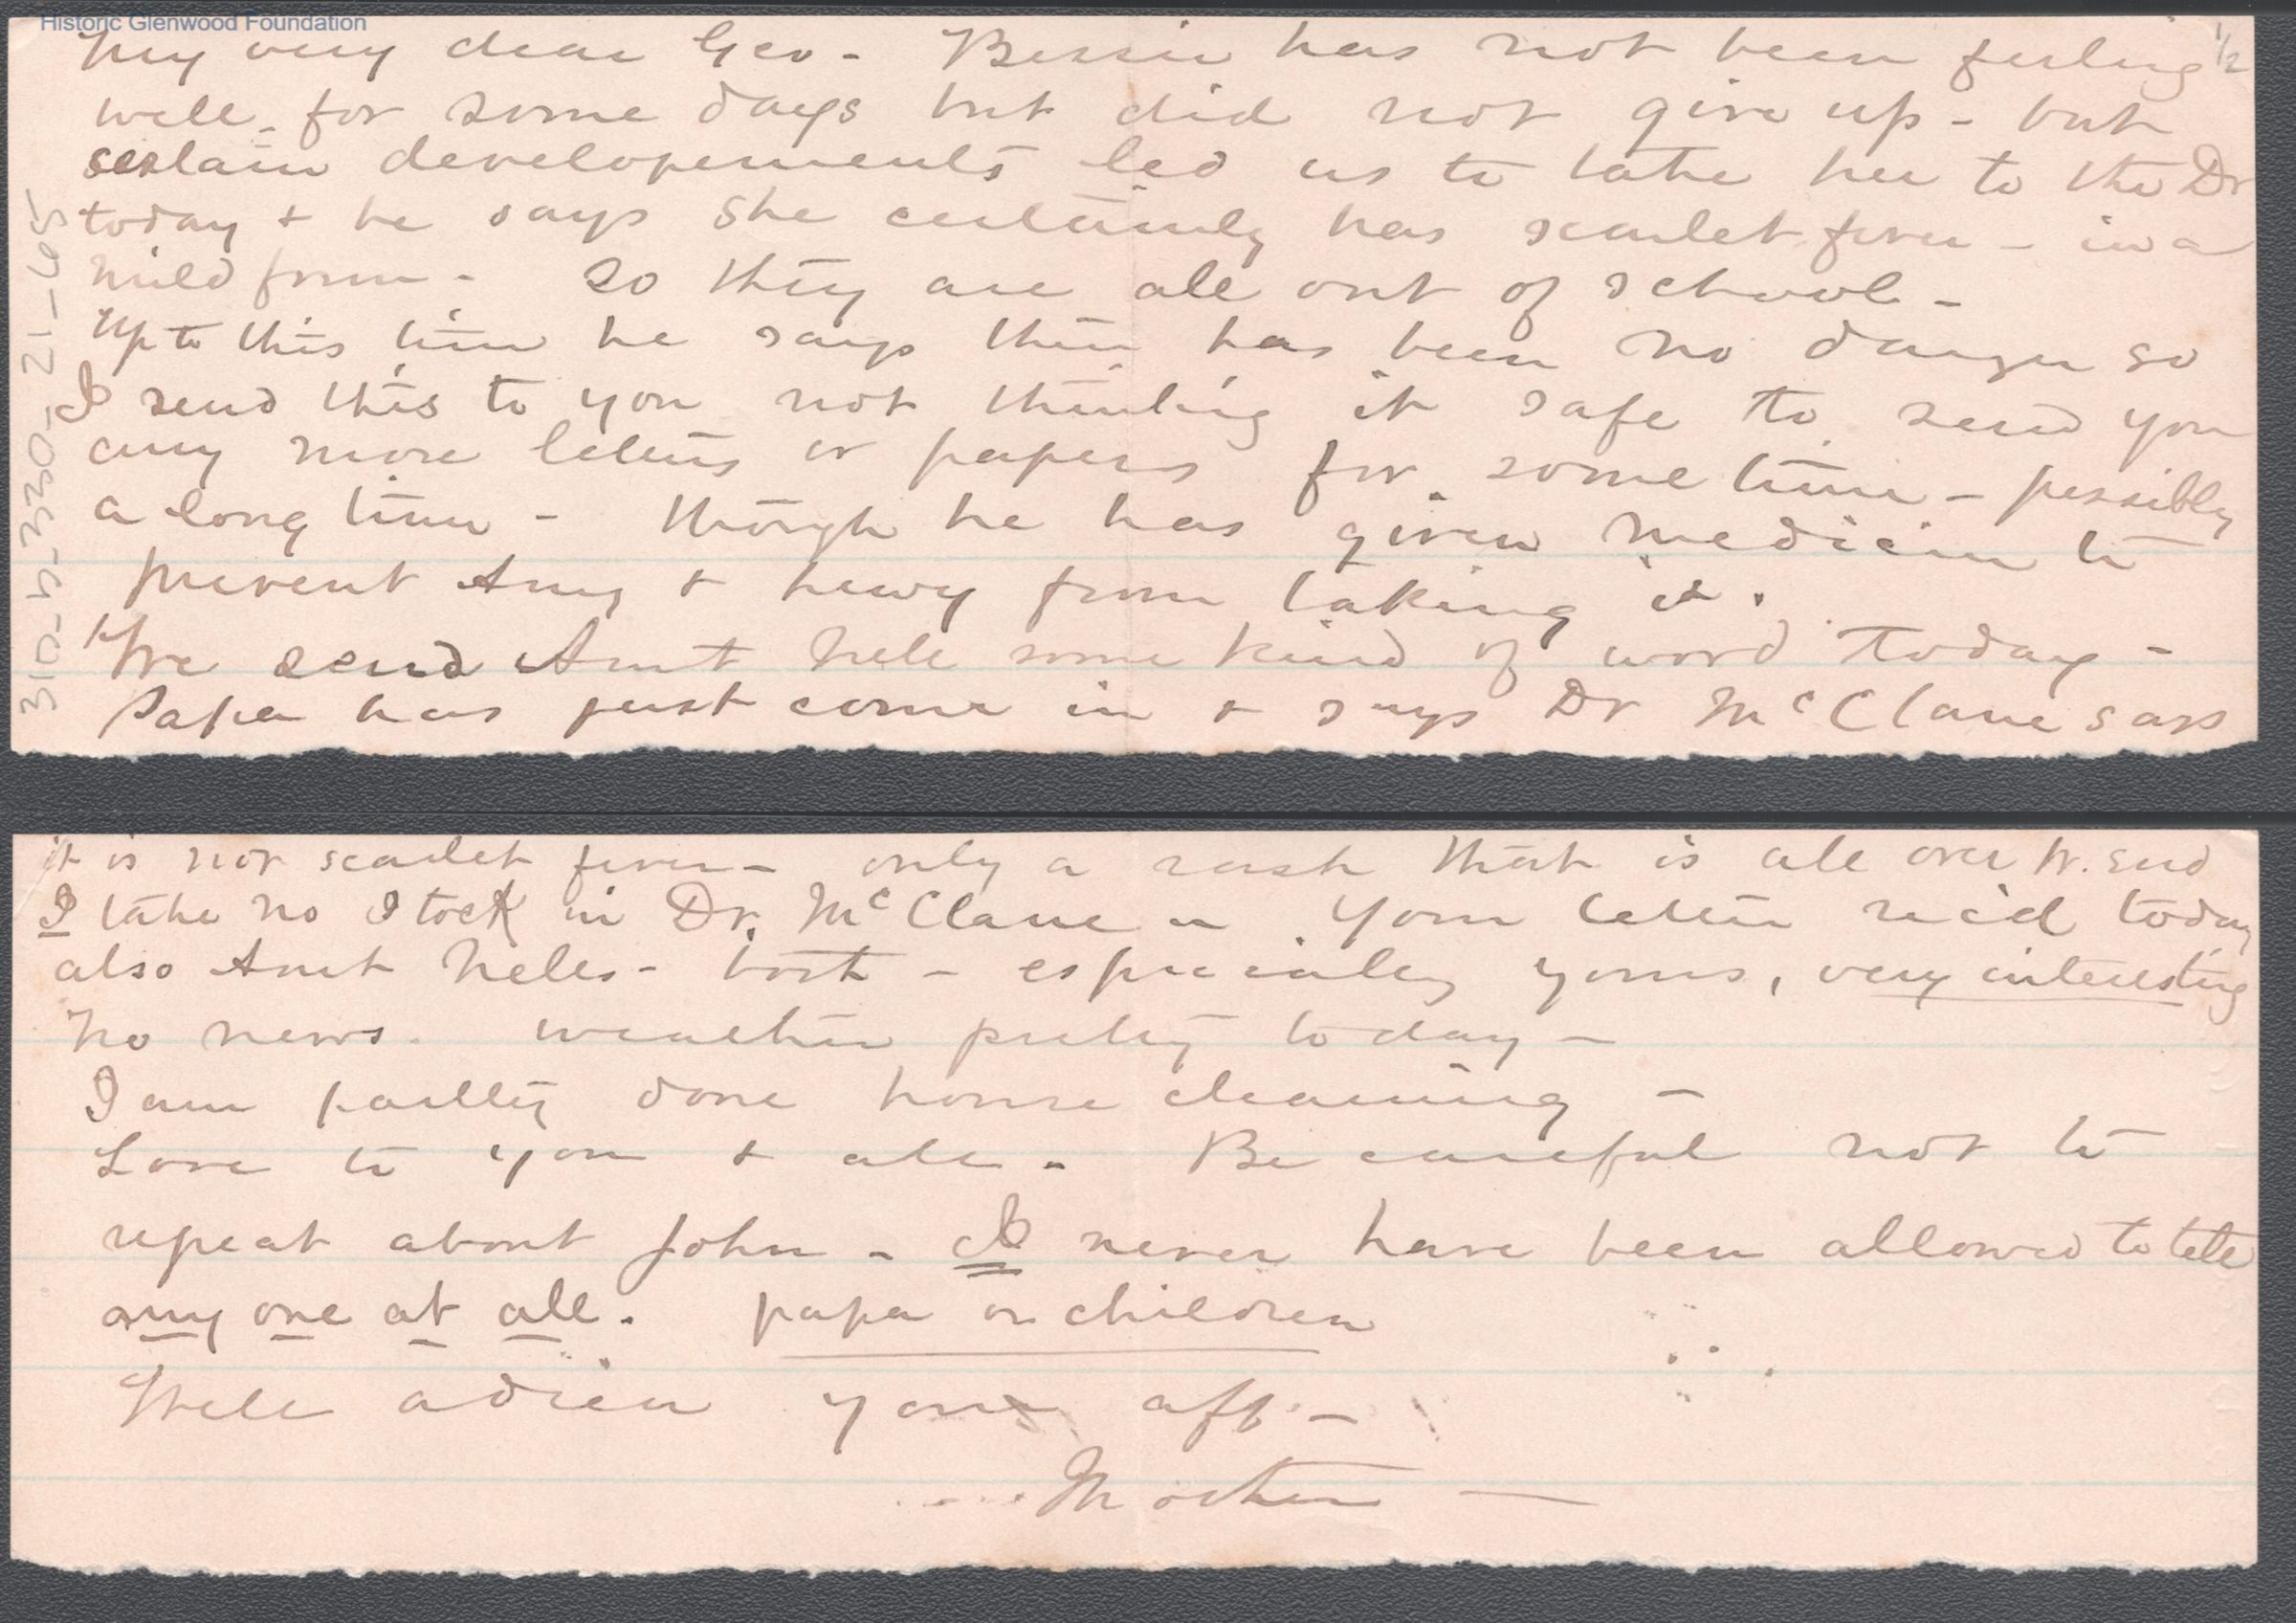 Historic Glenwood Foundation
My very dear Geo - Bessie has not been feeling 1/2
well - for some days but did not give up - but
certain developements led us to take her to the Dr
today + he says she certainly has scarlet fever - in a
mild form - So they are all out of school -
Up to this time he says there has been no danger so
I send this to you not thinking it safe to send you
any more letters or papers for some time - possibly
a long time - though he has given medicine to
prevent Amy + hewy from taking it.
We send Aunt Nell some kind of word today -
Papa has just come in + says Dr McClane says
310-B-330-21-65
it is not scarlet fever - only a rash that is all over W. End
I take no stock in Dr. McClane - Your letter rec'd today
also Aunt Nells - both - especially yours, very interesting
No news. weather pretty today -
I am partly done house cleaning -
Love to you + all - Be careful not to
repeat about John - I never have been allowed to tell
any one at all. papa or children
Well adieu your aff -
Mother -